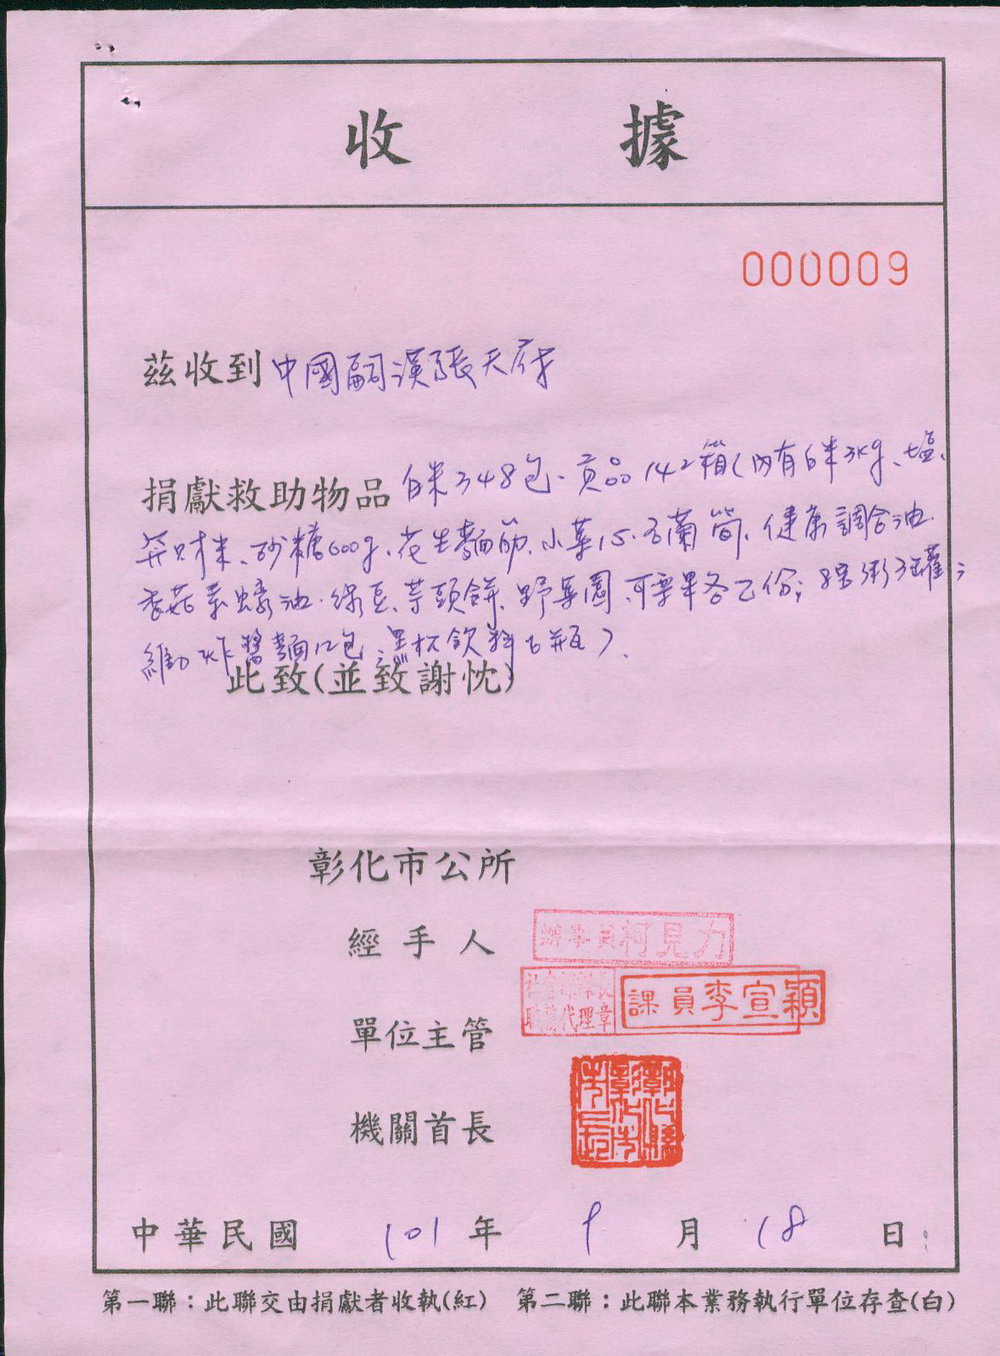 收據
000009
茲收到 中國嗣漢張天府
捐獻救助物品 白米348包、貢品142箱(內有白米3kg、塩、
米、砂糖600g、花生麵筋、小葉15、筒、健康調合油、
香菇素蠔油、綠豆、芋頭餅、野菜園、可樂果各乙份;
炸醬麵12包、飲料6瓶)。
此致(並致謝忱)
彰化市公所
經手人 辦事員柯見力
單位主管 社會課課長 職務代理章 課員李宣穎
機關首長 彰化縣彰化市市長
中華民國 101 年 9 月 18 日
第一聯:此聯交由捐獻者收執(紅) 第二聯:此聯本業務執行單位存查(白)